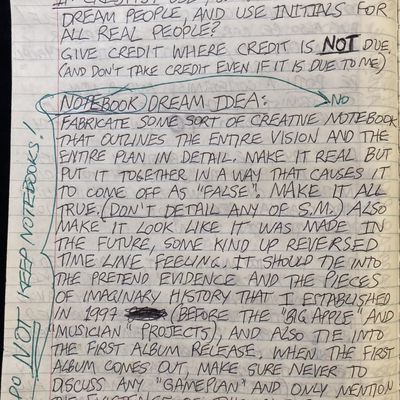 DREAM PEOPLE, AND USE INITIALS FOR
ALL REAL PEOPLE?
GIVE CREDIT WHERE CREDIT IS NOT DUE,
(AND DON'T TAKE CREDIT EVEN IF IT IS DUE TO ME)
NOTEBOOK DREAM IDEA: NO
FABRICATE SOME SORT OF CREATIVE NOTEBOOK
THAT OUTLINES THE ENTIRE VISION AND THE
ENTIRE PLAN IN DETAIL. MAKE IT REAL BUT
PUT IT TOGETHER IN A WAY THAT CAUSES IT
TO COME OFF AS "FALSE". MAKE IT ALL
TRUE. (DON'T DETAIL ANY OF S.M.) ALSO
MAKE IT LOOK LIKE IT WAS MADE IN
THE FUTURE, SOME KIND UP REVERSED
TIME LINE FEELING. IT SHOULD TIE INTO
THE PRETEND EVIDENCE AND THE PIECES
OF IMAGINARY HISTORY THAT I ESTABLISHED
IN 1999 (BEFORE THE "BIG APPLE" AND
"MUSICIAN" PROJECTS), AND ALSO TIE INTO
THE FIRST ALBUM RELEASE. WHEN THE FIRST
ALBUM COMES OUT, MAKE SURE NEVER TO
DISCUSS ANY "GAMEPLAN" AND ONLY MENTION
DO NOT KEEP NOTEBOOKS!